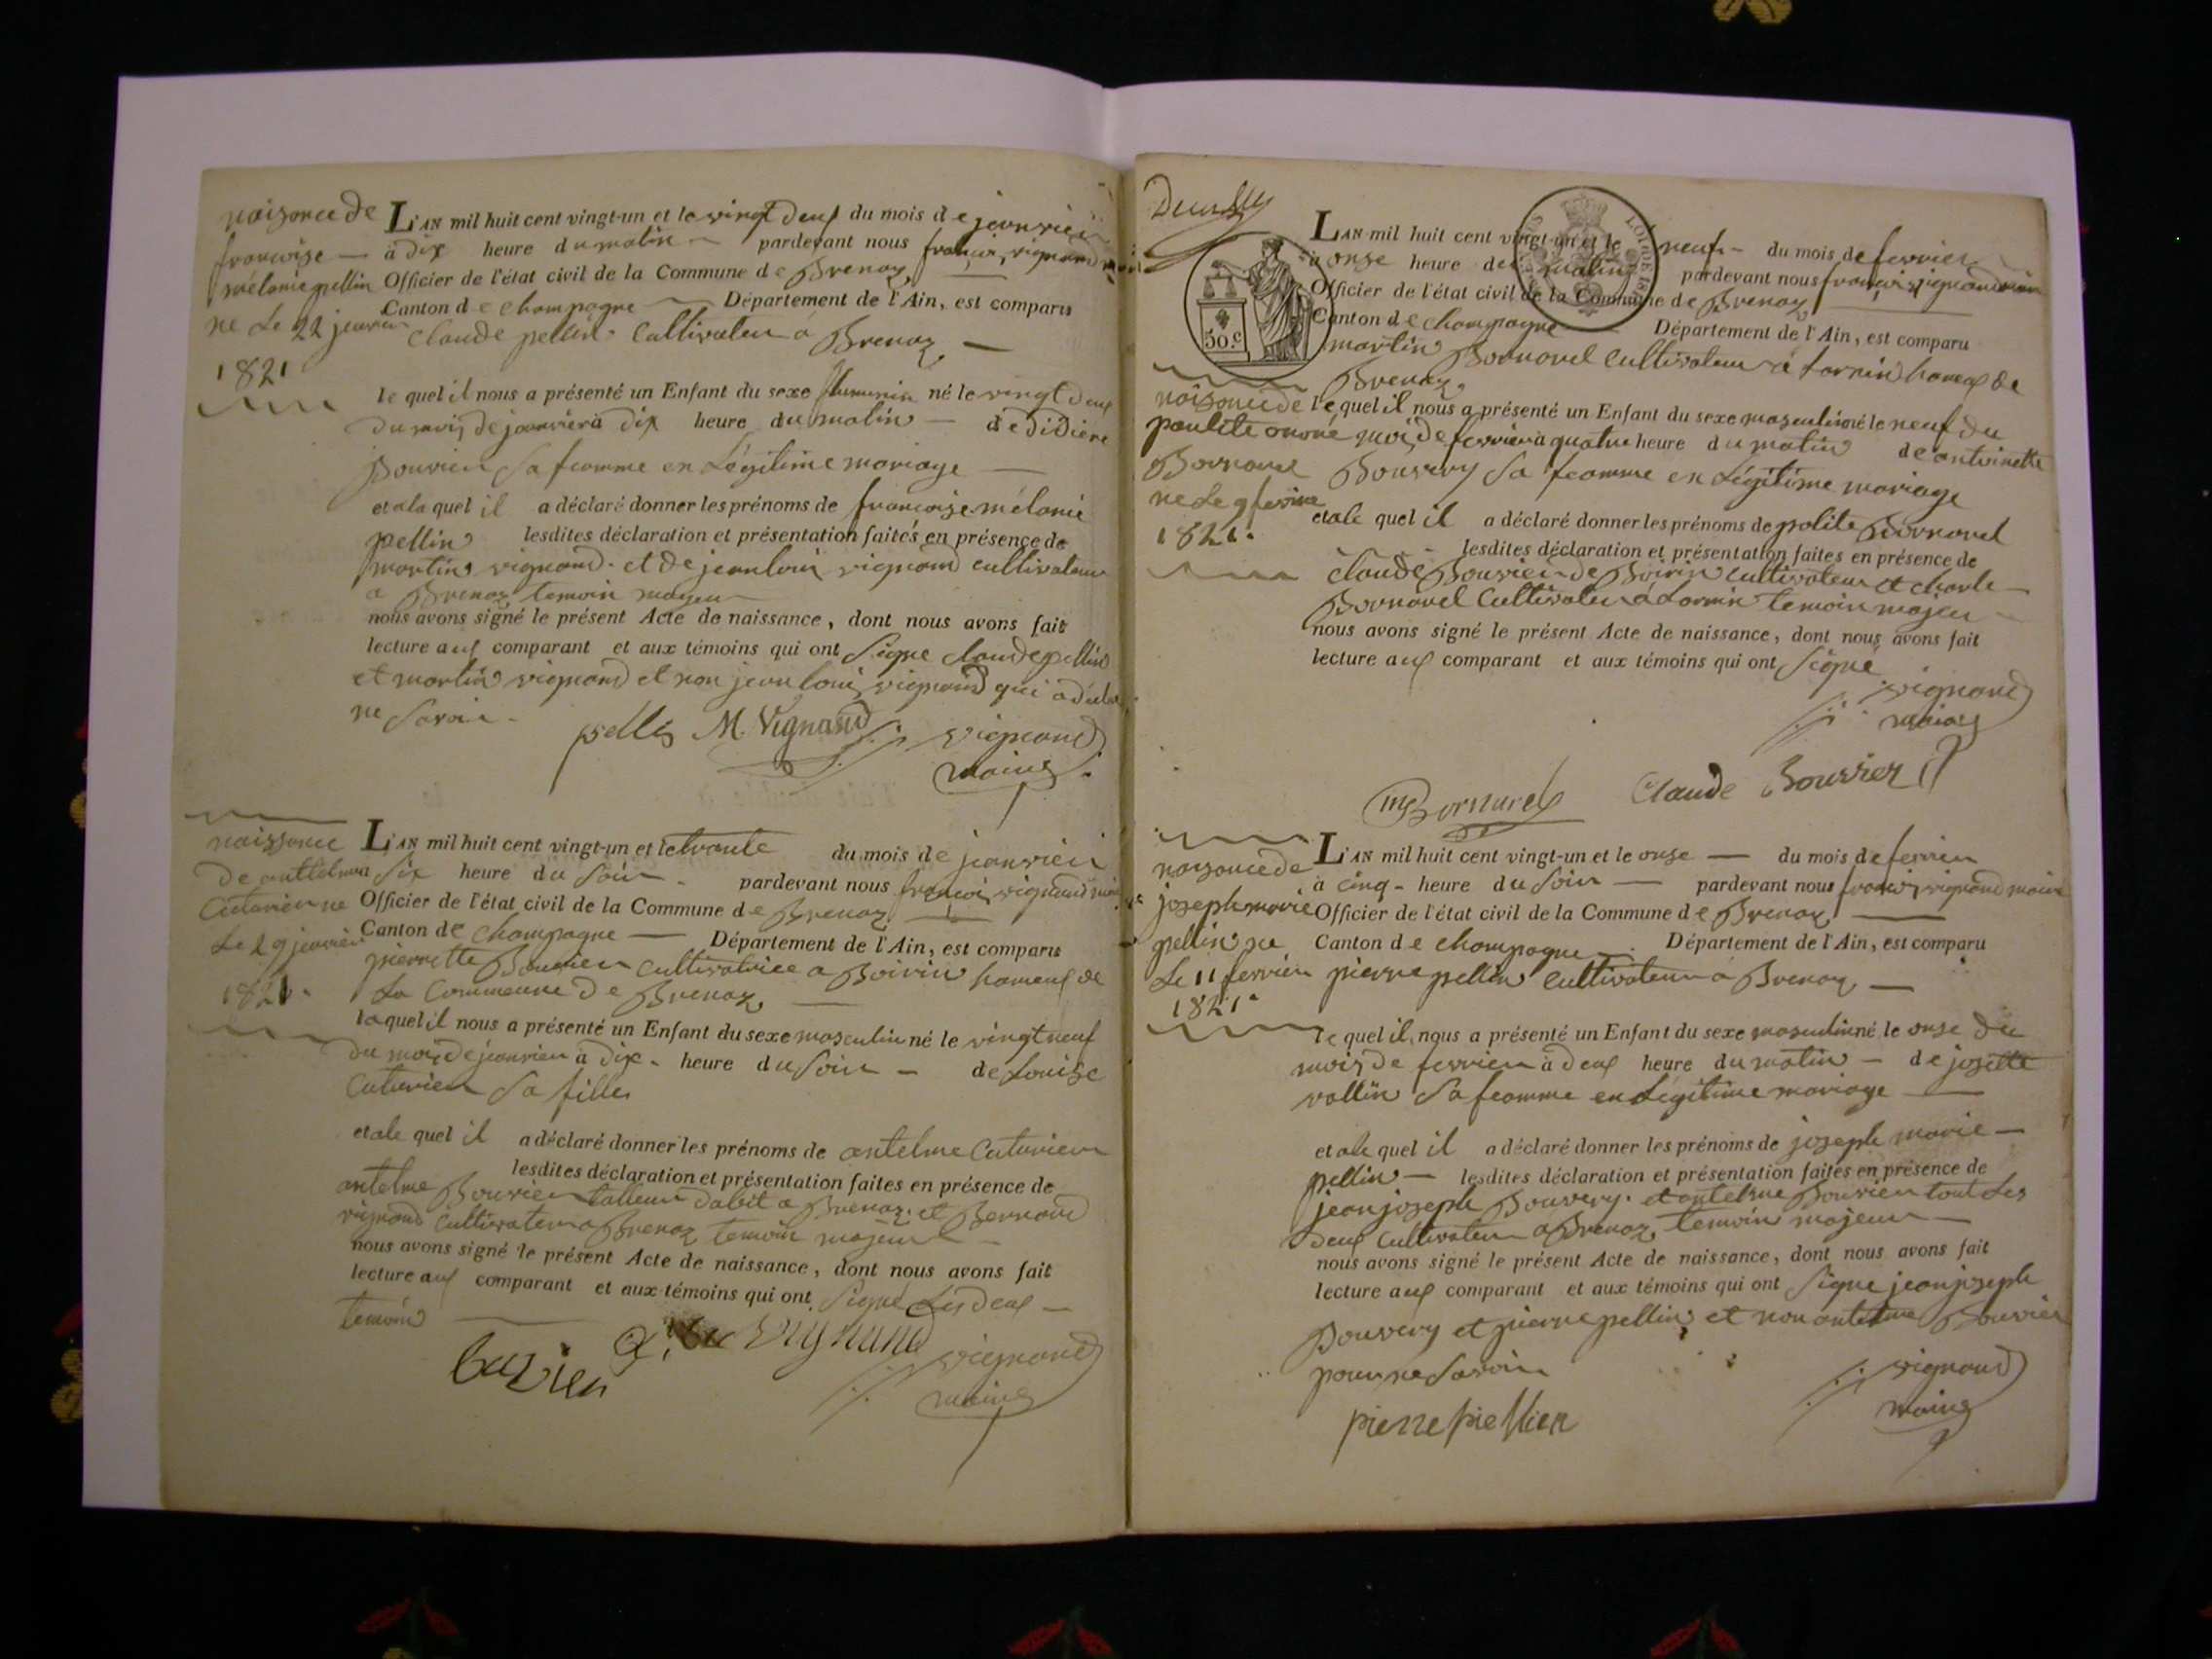 naisance de
francoise —
mélanie pellin
ne Le 22 janvier
1821
L'AN mil huit cent vingt-un et le vingt deux du mois de janvier
à dix heure du matin pardevant nous françois vignand
Officier de l'état civil de la Commune de Brenaz
Canton de Champagne — Département de l'Ain, est comparu
Claude pellin Cultivateur a Brenaz —
le quel il nous a présenté un Enfant du sexe né le vingt deux
du mois de janvier à dix heure du matin — de Didiere
Bouvier Sa feamme en Légitime mariage —
et a la quel il a déclaré donner les prénoms de francoise mélanie
pellin lesdites déclaration et présentation faites en présence de
martin vignand et de jean loui vignand cultivateur
a Brenaz temoin majeur
nous avons signé le présent Acte de naissance, dont nous avons fait
lecture aux comparant et aux témoins qui ont Signe claude pellin
et martin vignand et non jean loui vignand qui a
ne Savoir
pelli M. Vignand vignand
maire
naissance
De anttelme
Cuturier ne
Le 29 janvier
1821.
L'AN mil huit cent vingt-un et le trante du mois de janvier
a Six heure du Soir pardevant nous françois vignand maire
Officier de l'état civil de la Commune de Brenaz —
Canton de Champagne — Département de l'Ain, est comparu
pierrette Bouvier cultivatrice a Boirin hameux de
La Commeune de Brenaz —
la quel il nous a présenté un Enfant du sexe masculin né le vingt neuf
du mois de janvier à dix heure du Soir — de Louise
Cuturier Sa fille
et a le quel il a déclaré donner les prénoms de antelme Cuturier
lesdites déclaration et présentation faites en présence de
antelme Bouvier talleur dabit a Brenaz et Bernand
vignand Cultivateur a Brenaz temoin majeur
nous avons signé le présent Acte de naissance, dont nous avons fait
lecture aux comparant et aux témoins qui ont Signé Les deux —
temoin —
vignand
maire
50.c
naisance de
Bornarel
ne Le 9 fevrier
1821.
L'AN mil huit cent vingt-un et le neuf — du mois de fevrier
à onse heure du matin pardevant nous françois vignand maire
Officier de l'état civil de la Commune de Brenaz —
Canton de Champagne Département de l'Ain, est comparu
martin Bornarel Cultivateur a hameux de
Brenaz
le quel il nous a présenté un Enfant du sexe masculin né le neuf du
mois de fevrier à quatre heure du matin de antoinette
Bouvery Sa feamme en Légitime mariage
et a le quel il a déclaré donner les prénoms de polite Bornarel
lesdites déclaration et présentation faites en présence de
Claude Bouvier de Boirin Cultivateur et charle —
Bornarel Cultivateur a temoin majeur
nous avons signé le présent Acte de naissance, dont nous avons fait
lecture aux comparant et aux témoins qui ont Signe
vignand
maire
m Bornarel Claude Bouvier
naisance de
joseph marie
pellin ne
Le 11 fevrier
1821.
L'AN mil huit cent vingt-un et le onse — du mois de fevrier
à cinq - heure du Soir — pardevant nous françois vignand maire
Officier de l'état civil de la Commune de Brenaz —
Canton de Champagne — Département de l'Ain, est comparu
pierre pellin Cultivateur a Brenaz —
le quel il nous a présenté un Enfant du sexe masculin né le onse du
mois de fevrier à deux heure du matin — de josette
vallin Sa feamme en Légitime mariage —
et a le quel il a déclaré donner les prénoms de joseph marie —
pellin — lesdites déclaration et présentation faites en présence de
jean joseph Bouvery et antelme Bouvier tout Les
deux Cultivateur a Brenaz temoin majeur —
nous avons signé le présent Acte de naissance, dont nous avons fait
lecture aux comparant et aux témoins qui ont Signe jean joseph
Bouvery et pierre pellin et non antelme Bouvier
pour ne Savoir
vignand
maire
pierre piellien